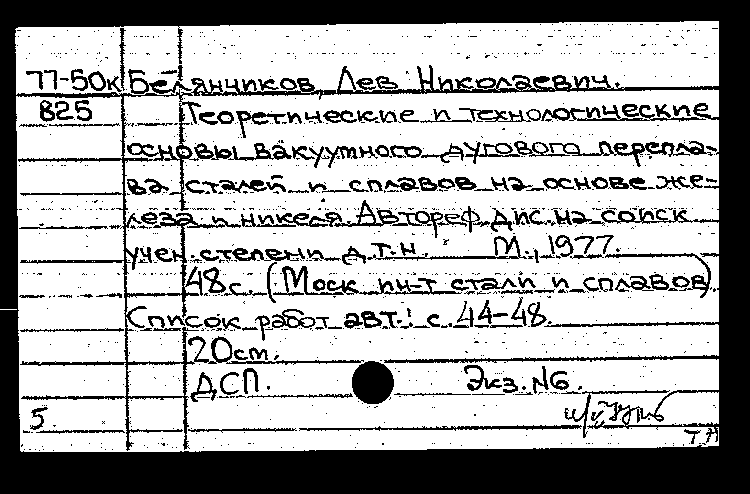 77-50к Белянчиков, Лев Николаевич.
825 Теоретические и технологические
основы вакуумного дугового перепла-
ва сталей и сплавов на основе же-
леза и никеля. Автореф. дис. на соиск
учен. степени д.т.н. М., 1977.
48с. (Моск ин-т стали и сплавов)
Список работ авт.: с 44-48.
20см.
ДСП. Экз. №6.
5
ТН